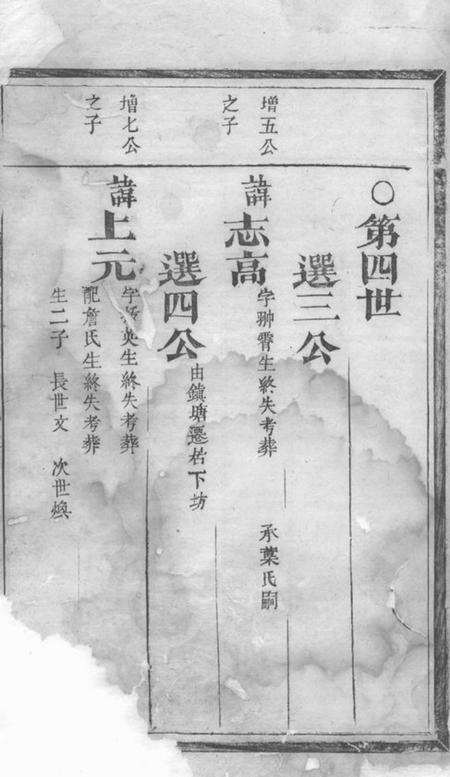 ○第四世
增五公
之子
選三公
諱志高
字翀霄生終失考葬
承葉氏嗣
增七公
之子
選四公
由鎮塘遷居下坊
諱上元
字 英生終失考葬
配詹氏生終失考葬
生二子 長世文 次世煥